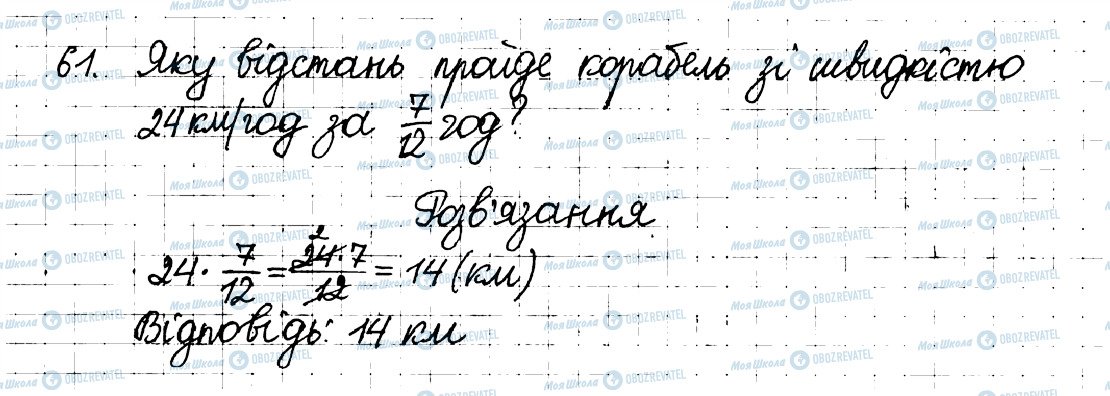 61. Яку відстань пройде корабель зі швидкістю
24 км/год за 7/12 год?
Розв'язання
24 · 7/12 = 24·7/12 = 14 (км)
Відповідь: 14 км